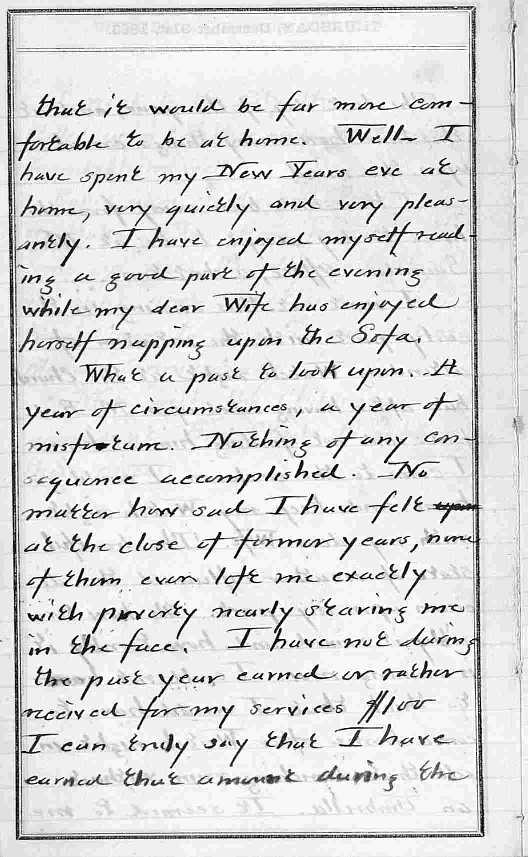 that it would be far more com-
fortable to be at home. Well I
have spent my New Years eve at
home, very quietly and very pleas-
antly. I have enjoyed myself read-
ing a good part of the evening
while my dear Wife has enjoyed
herself napping upon the Sofa.
What a past to look upon. A
year of circumstances, a year of
misfortune. Nothing of any con-
sequence accomplished. No
matter how sad I have felt upon
at the close of former years, none
of them ever left me exactly
with poverty nearly staring me
in the face. I have not during
the past year earned or rather
received for my services $100
I can truly say that I have
earned that amount during the